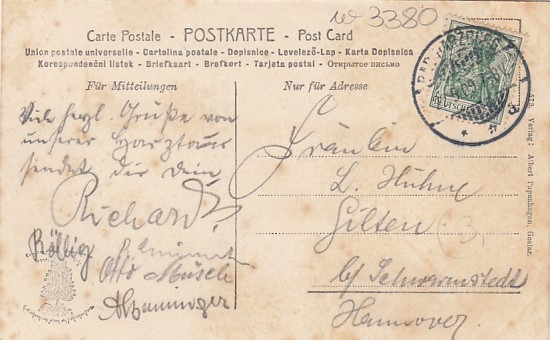 w 3380
Carte Postale - POSTKARTE - Post Card
Union postale universelle - Cartolina postale - Dopisnice - Levelező-Lap - Karta Dopisnica
Korespondenční lístek - Briefkaart - Brefkort - Tarjeta postal - Открытое письмо
Für Mitteilungen
Nur für Adresse
Viele herzl. Grüße von
unserer Harztour
sendet dir dein
Richard
Röllig
Otto Müsch
Fräulein
L. Hühne
Gilten
b/ Schwarmstedt
Hannover
(3,
BAD HARZBURG
DEUTSCHES
573 Verlag: Albert Papenhagen, Goslar.